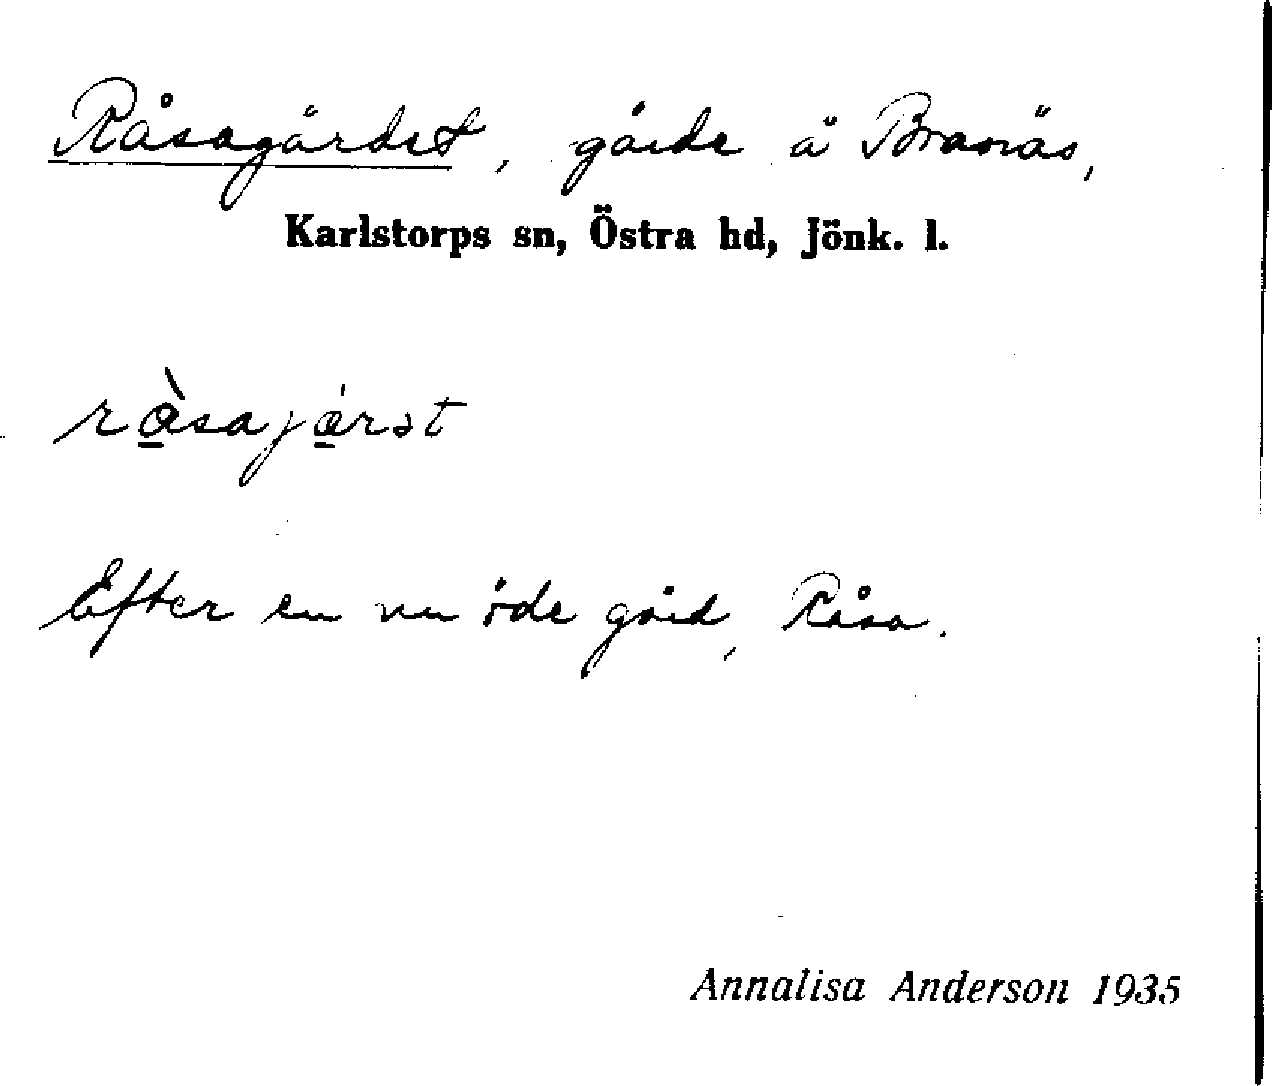 Råsagärdet, gärde å Branäs,
Karlstorps sn, Östra hd, Jönk. l.
rå̀sajærət
Efter en nu öde gård, Råsa.
Annalisa Anderson 1935